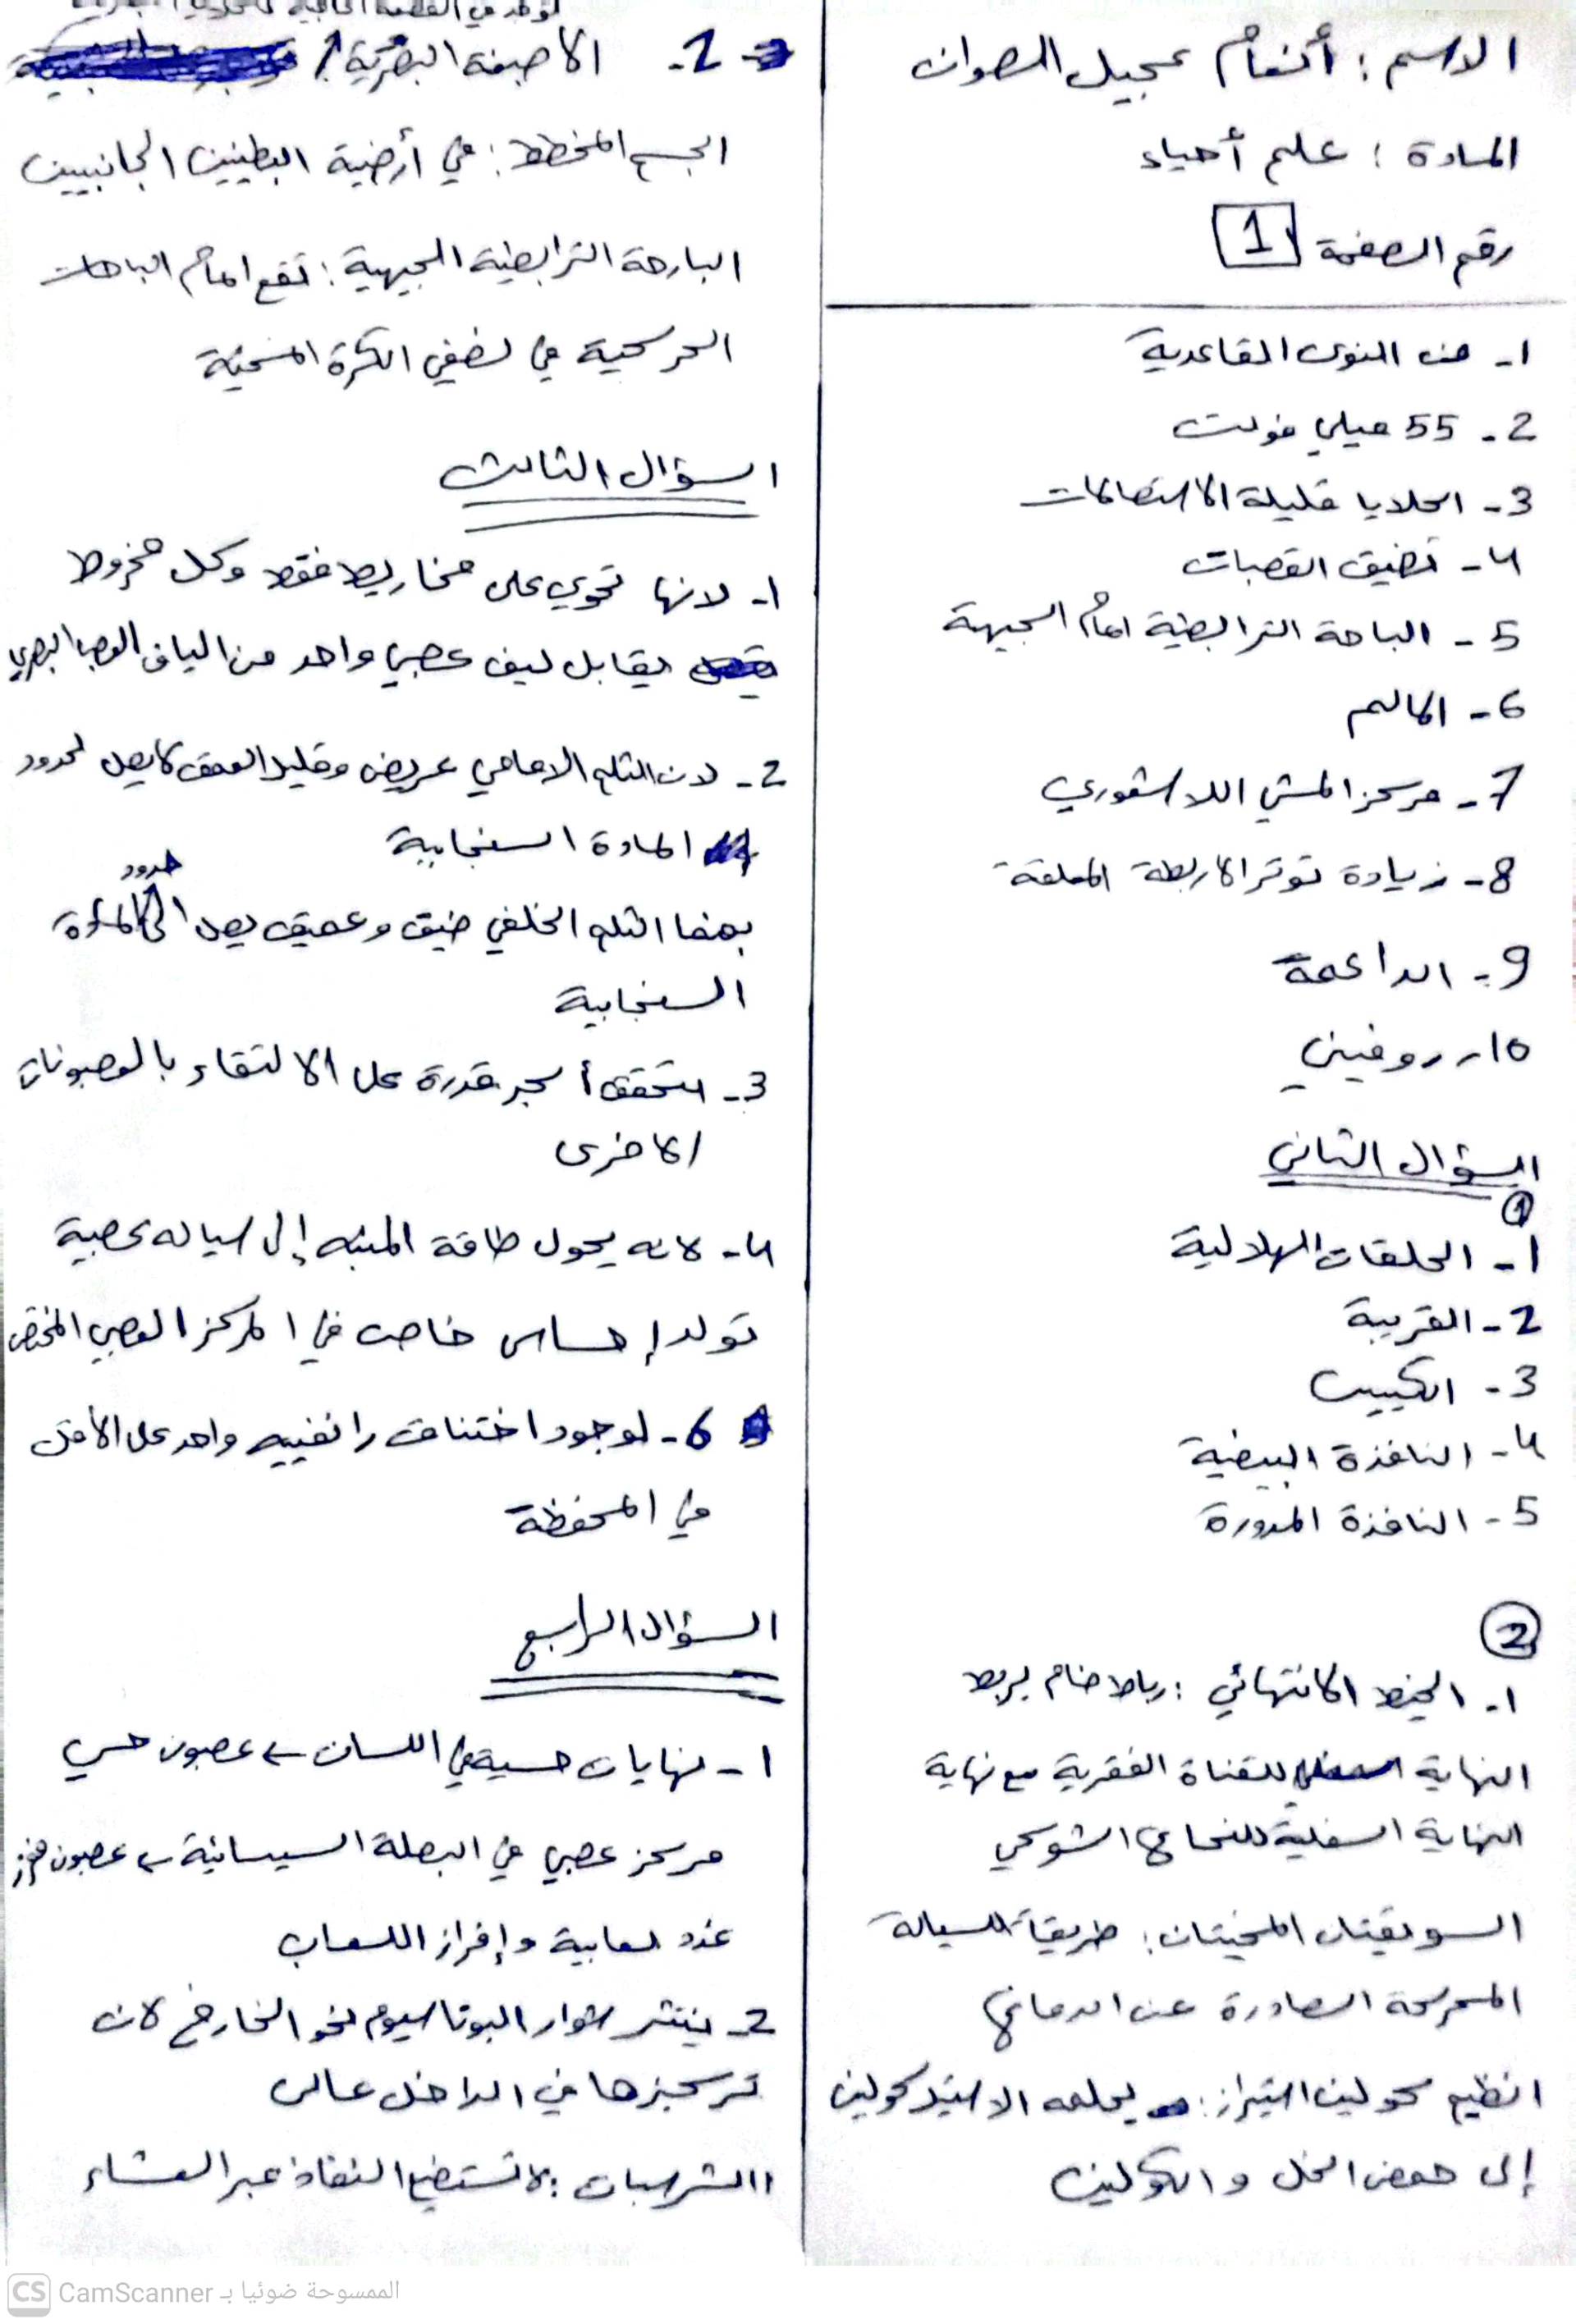 الاسم : أنغام عجيل الصوان
المادة : علم أحياء
رقم الصفحة 1
1- من النوى القاعدية
2- 55 ميلي فولت
3- الخلايا قليلة الاستطالات
4- تضيق القصبات
5- الباحة الترابطية امام الجبهية
6- المالحم
7- مركز المشي اللاشعوري
8- زيادة توتر الاربطة المعلقة
9- الداعمة
10- روفيني
السؤال الثاني
1
1- الحلقات الهلالية
2- القريبة
3- الكييس
4- النافذة البيضية
5- النافذة المدورة
2
1- الخيط الانتهائي : رباط ضام يربط
النهاية للقناة الفقرية مع نهاية
النهاية السفلية للنخاع الشوكي
السويقتان المخيتان : طريقاً للسيالة
المحركة الصادرة عن الدماغ
انظيم كولين استيراز : يحلمه الاستيل كولين
إلى حمض الخل والكولين
2- الاصبغة البصرية :
الجسم المخطط : في أرضية البطينين الجانبيين
البارحة الترابطية الجبهية : تقع امام الباحات
الحركية في نصفي الكرة المخية
السؤال الثالث
1- لانها تحوي على مخاريط فقط وكل مخروط
يقابل ليف عصبي واحد من الياف العصب البصري
2- لان الثلم الامامي عريض وقليل العمق لايصل لحدود
المادة السنجابية
بينما الثلم الخلفي ضيق وعميق يصل الى حدود المادة
السنجابية
3- لتحقق أكبر قدرة على الالتقاء بالعصبونات
الاخرى
4- لانه يحول طاقة المنبه إلى سياله عصبية
تولد إحساس خاص في المركز العصبي المختص
6- لوجود اختناق رانفييه واحد على الأقل
في المحفظة
السؤال الرابع
1- نهايات حسية في اللسان ← عصبون حسي
مركز عصبي في البصلة السيسائية ← عصبون مفرز
غدد لعابية وإفراز اللعاب
2- ينتشر شوارد البوتاسيوم نحو الخارج لان
تركيزها في الداخل عالي
الشرسبات : لا تستطيع النفاذ عبر الغشاء
CS CamScanner الممسوحة ضوئيا بـ